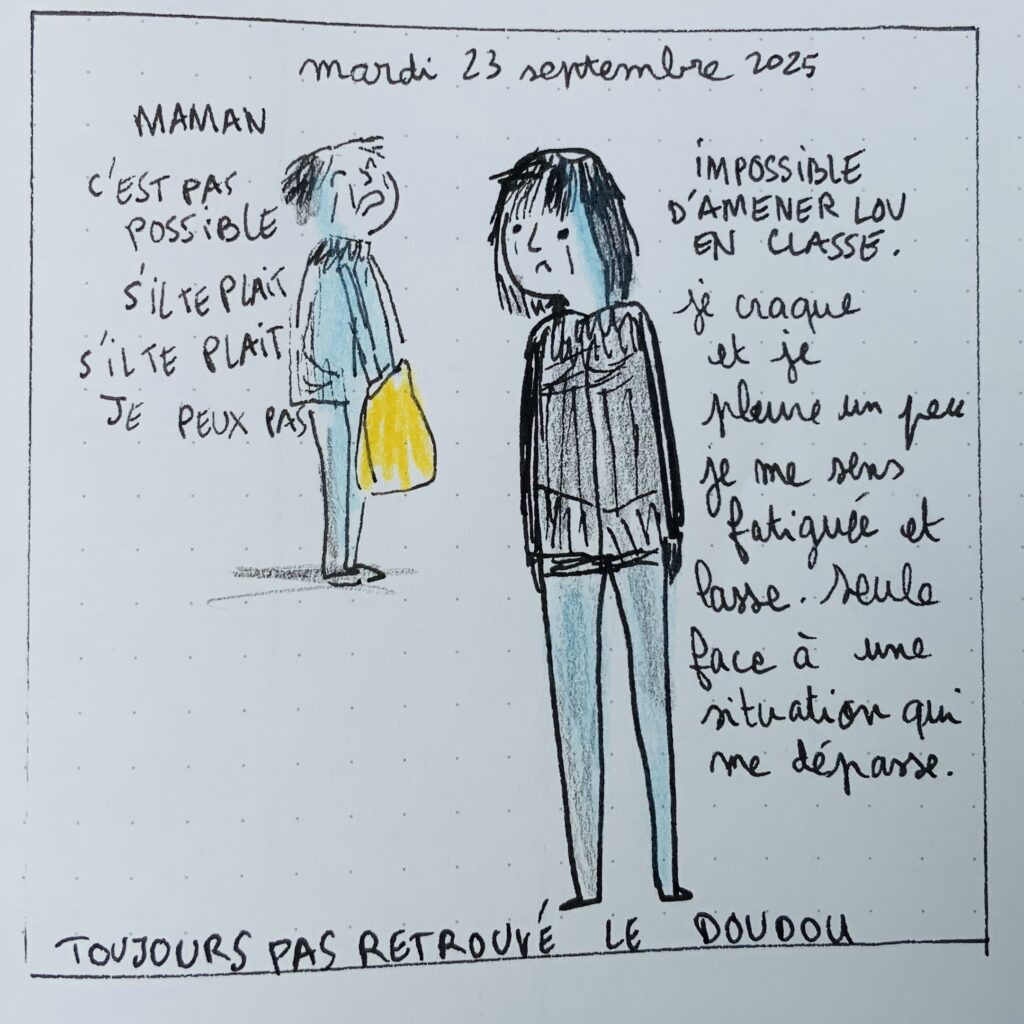 mardi 23 septembre 2025
MAMAN
C'EST PAS
POSSIBLE
S'IL TE PLAIT
S'IL TE PLAIT
JE PEUX PAS
IMPOSSIBLE
D'AMENER LOU
EN CLASSE.
je craque
et je
pleure un peu
je me sens
fatiguée et
lasse. seule
face à une
situation qui
me dépasse.
TOUJOURS PAS RETROUVÉ LE DOUDOU